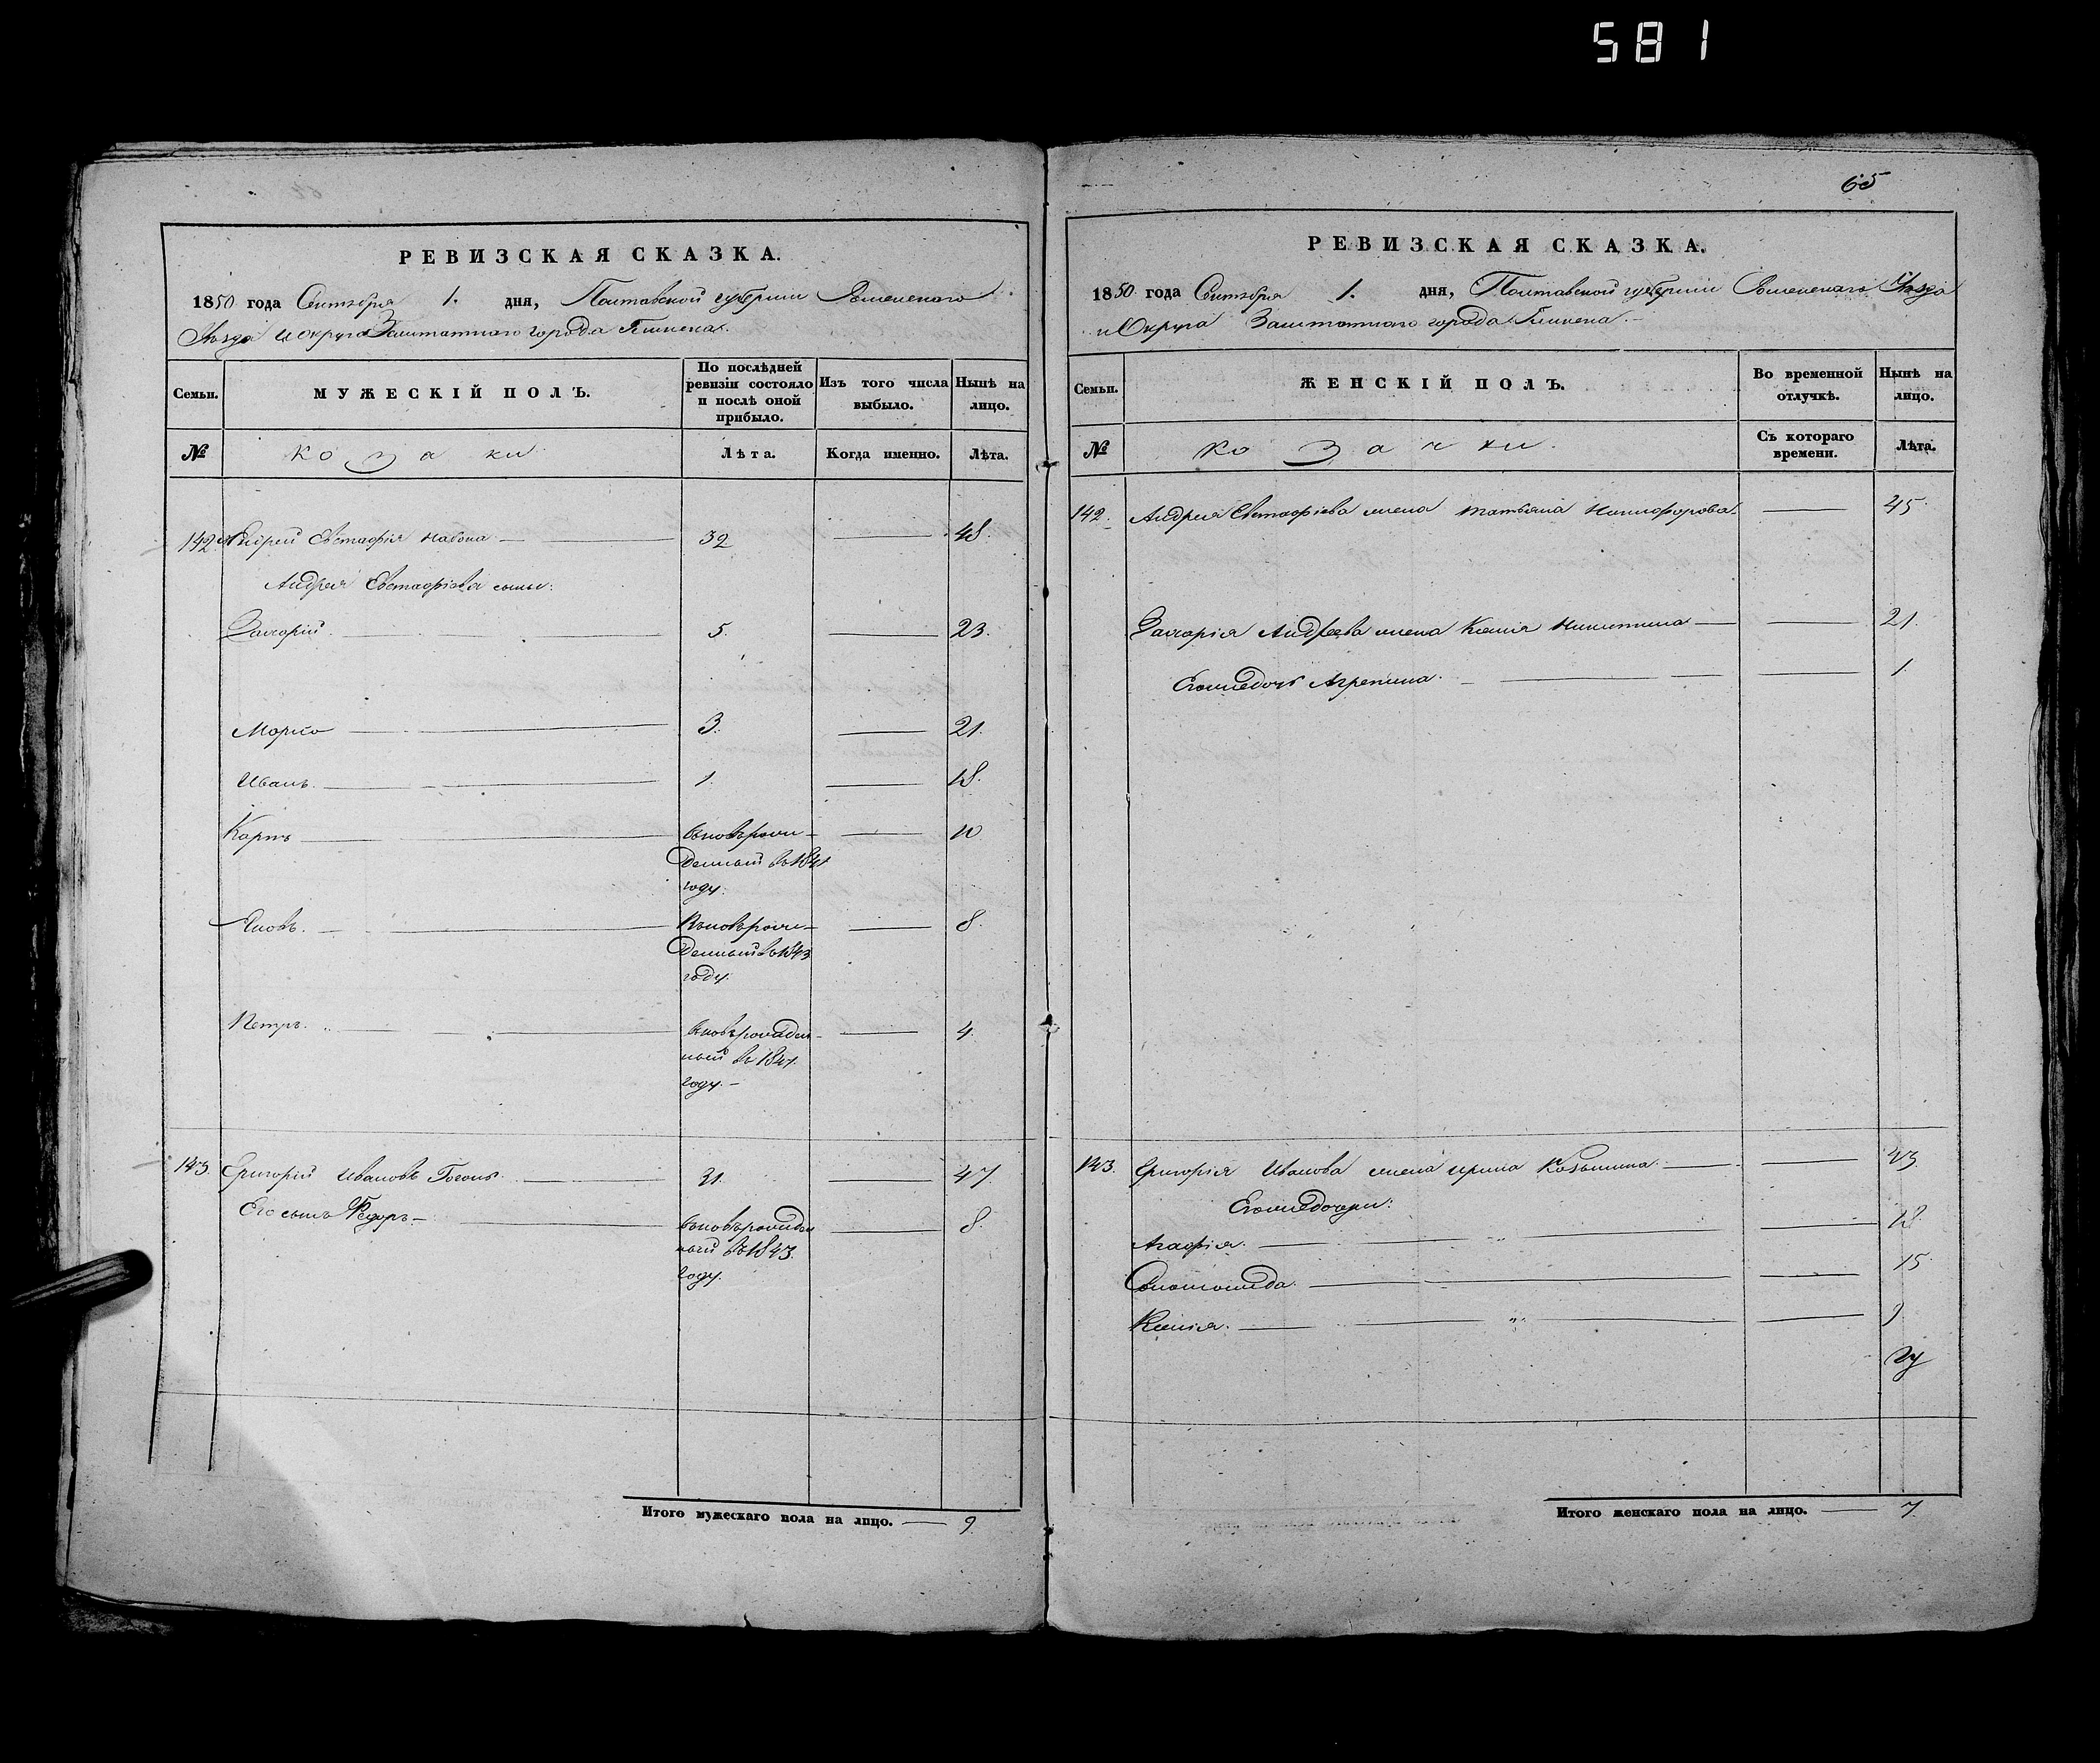 581
65
РЕВИЗСКАЯ СКАЗКА.
1850 года Сентября 1. дня, Полтавской губернии Роменскаго
Уезда и округа Заштатнаго города Глинска.
Семьи. МУЖЕСКІЙ ПОЛЪ. По послѣдней ревизіи состояло и послѣ оной прибыло. Изъ того числа выбыло. Нынѣ на лицо.
№ козаки Лѣта. Когда именно. Лѣта.
142 Андрей Евстафія — 32 — 48.
Андрея Евстафіева сыны:
Захарій. — 5. — 23.
Марко — 3. — 21.
Иванъ. — 1. — 18.
Карпъ — вновьрож-
денный въ 1841
году. — 10
Яковъ. — Вновьрож-
денный въ 1843
году. — 8.
Петръ. — вновьрожден-
ный въ 1847.
году. — 4.
143. Григорій Ивановъ — 31. — 47.
Его сынъ Федоръ — вновьрожден
ный въ 1843.
году. — 8.
Итого мужескаго пола на лицо. — 9
РЕВИЗСКАЯ СКАЗКА.
1850 года Сентября 1. дня, Полтавской губерніи Роменскаго Уезда
и Округа Заштатнаго города Глинска. —
Семьи. ЖЕНСКІЙ ПОЛЪ. Во временной отлучкѣ. Нынѣ на лицо.
№ козачки. Съ котораго времени. Лѣта.
142. Андрея Евстафіева жена Татьяна Никифорова — 45
Захарія Андреева жена Ксенія Никитина — 21.
Егожедочь Агрепина. — 1.
143. Григорія Иванова жена Ирина Козьмина — 43
Егожедочери:
Агафія. — 18.
— 15
Ксенія. — 9
Итого женскаго пола на лицо. — 7.